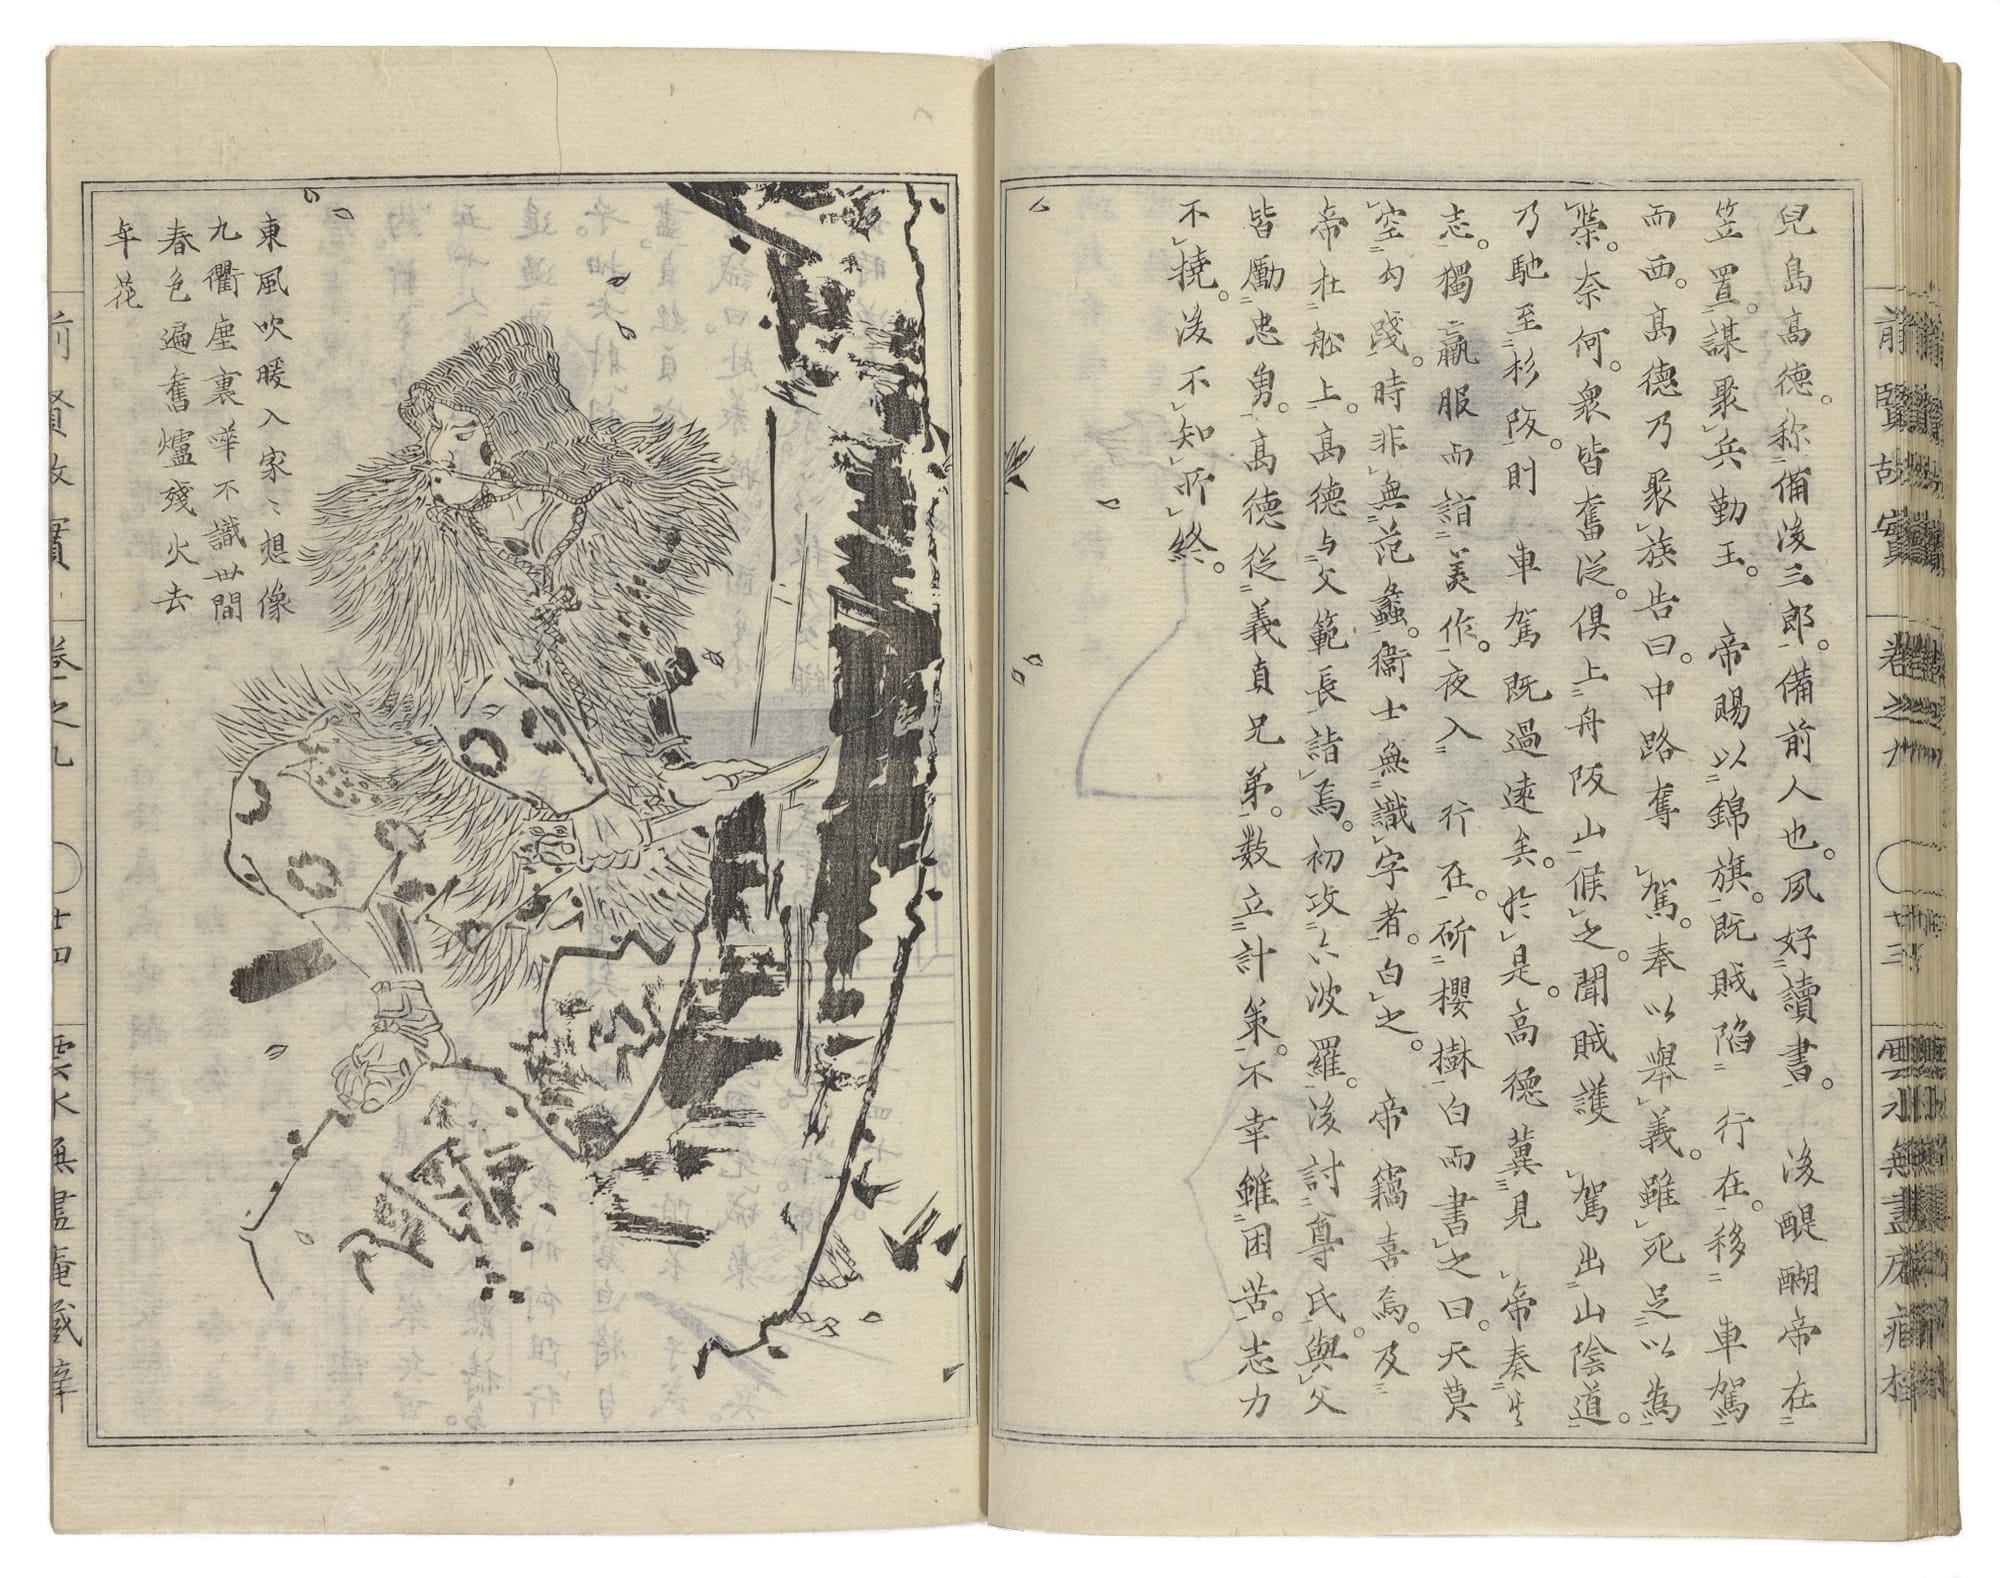 前賢故實 卷之九 廿三 雲水無盡庵藏梓
兒島高德。称備後三郎。備前人也。夙好讀書。 後醍醐帝在
笠置。謀聚兵勤王。 帝賜以錦旗。既賊陷 行在。移 車駕
而西。高德乃聚族告曰。中路奪 駕。奉以舉義。雖死足以為
榮。奈何。衆皆奮従。倶上舟阪山候之。聞賊護 駕出山陰道。
乃馳至杉阪。則 車駕既過遠矣。於是。高德冀見 帝奏
志。獨羸服而詣美作。夜入 行在。斫櫻樹白而書之曰。天莫
空勾踐。時非無范蠡。衞士無識字者。白之。 帝竊喜焉。及
帝在舩上。高德与父範長詣焉。初攻六波羅。後討尊氏。與父
皆勵忠勇。高德従義貞兄弟。数立計策。不幸雖困苦。志力
不撓。後不知所終。
東風吹暖入家〻想像
九衢塵裏嘩不識世間
春色遍奮爐殘火去
年花
前賢故實 卷之九 廿四 雲水無盡庵藏梓